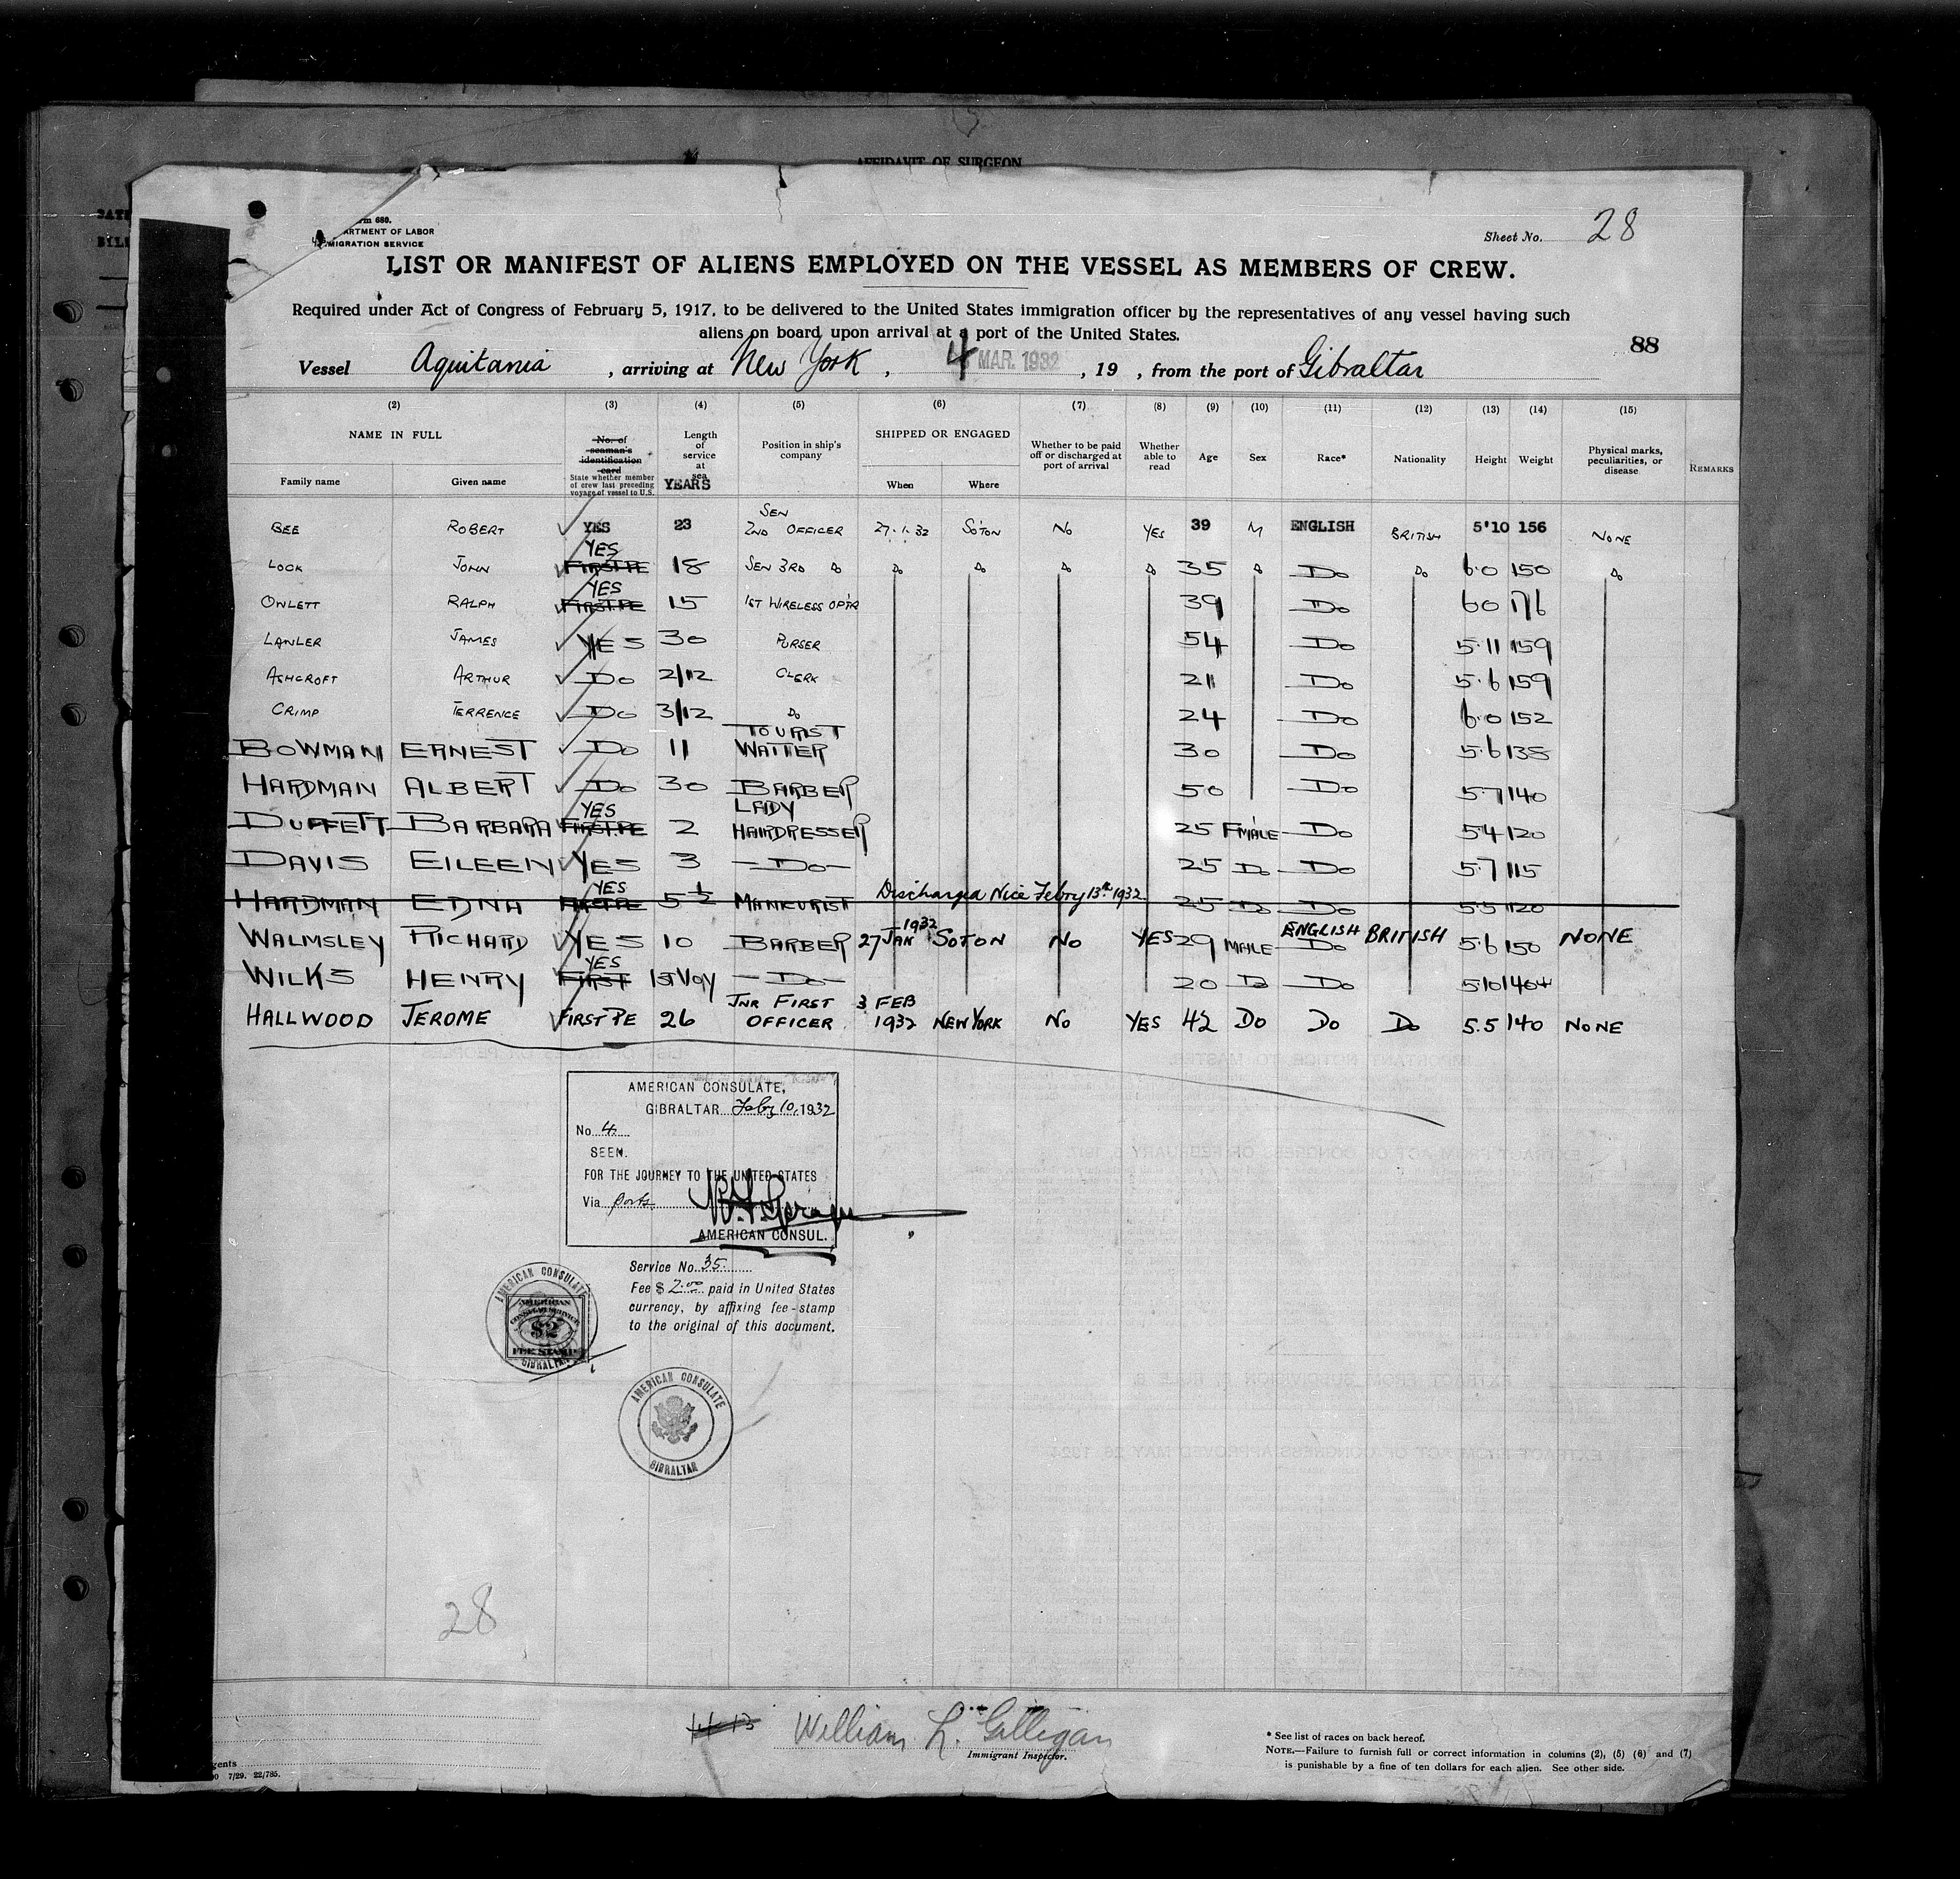 AFFIDAVIT OF SURGEON
rm 680.
ARTMENT OF LABOR
MIGRATION SERVICE
Sheet No. 28
LIST OR MANIFEST OF ALIENS EMPLOYED ON THE VESSEL AS MEMBERS OF CREW.
Required under Act of Congress of February 5, 1917, to be delivered to the United States immigration officer by the representatives of any vessel having such
aliens on board upon arrival at a port of the United States.
88
Vessel Aquitania, arriving at New York, 4 MAR. 1932, 19 , from the port of Gibraltar
(2) (3) (4) (5) (6) (7) (8) (9) (10) (11) (12) (13) (14) (15)
NAME IN FULL
Family name Given name
No. of seaman's identification card
State whether member of crew last preceding voyage of vessel to U.S.
Length of service at sea YEARS
Position in ship's company
SHIPPED OR ENGAGED
When Where
Whether to be paid off or discharged at port of arrival
Whether able to read
Age Sex Race* Nationality Height Weight
Physical marks, peculiarities, or disease
REMARKS
BEE ROBERT YES 23 SEN 2ND OFFICER 27.1.32 SOTON NO YES 39 M ENGLISH BRITISH 5'10 156 NONE
LOOK JOHN FIRST PE YES 18 SEN 3RD DO DO DO DO DO 35 DO DO DO 6.0 150 DO
OWLETT RALPH FIRST PE YES 15 1ST WIRELESS OPTR 39 DO 6.0 176
LAWLER JAMES YES 30 PURSER 54 DO 5.11 159
ASHCROFT ARTHUR DO 2/12 CLERK 21 DO 5.6 159
CRIMP TERRENCE DO 3/12 DO 24 DO 6.0 152
BOWMAN ERNEST DO 11 TOURIST WAITER 30 DO 5.6 135
HARDMAN ALBERT DO 30 BARBER 50 DO 5.7 140
DUFFETT BARBARA FIRST PE YES 2 LADY HAIRDRESSER 25 FMALE DO 5.4 120
DAVIS EILEEN YES 3 DO 25 DO DO 5.7 115
HARDMAN EDNA YES 5 1/2 MANCURIST Discharged Nice Febry 13th 1932 25 DO DO 5.5 120
WALMSLEY RICHARD YES 10 BARBER 27 JAN 1932 SOTON NO YES 29 MALE ENGLISH DO BRITISH 5.6 150 NONE
WILKS HENRY FIRST YES 1ST VOY DO 20 DO DO 5.10 140
HALLWOOD JEROME FIRST PE 26 JNR FIRST OFFICER 3 FEB 1932 NEW YORK NO YES 42 DO DO DO 5.5 140 NONE
AMERICAN CONSULATE,
GIBRALTAR Feby 10, 1932
No. 4.
SEEN.
FOR THE JOURNEY TO THE UNITED STATES
Via ports
AMERICAN CONSUL.
Service No. 35
Fee $ 2.00 paid in United States
currency, by affixing fee-stamp
to the original of this document.
AMERICAN CONSULATE
AMERICAN
CONSULAR SERVICE
$2
FEE STAMP
GIBRALTAR
AMERICAN CONSULATE
GIBRALTAR
28
William L. Gilligan
Immigrant Inspector.
* See list of races on back hereof.
NOTE.—Failure to furnish full or correct information in columns (2), (5) (6) and (7)
is punishable by a fine of ten dollars for each alien. See other side.
gents
7/29. 22/785.